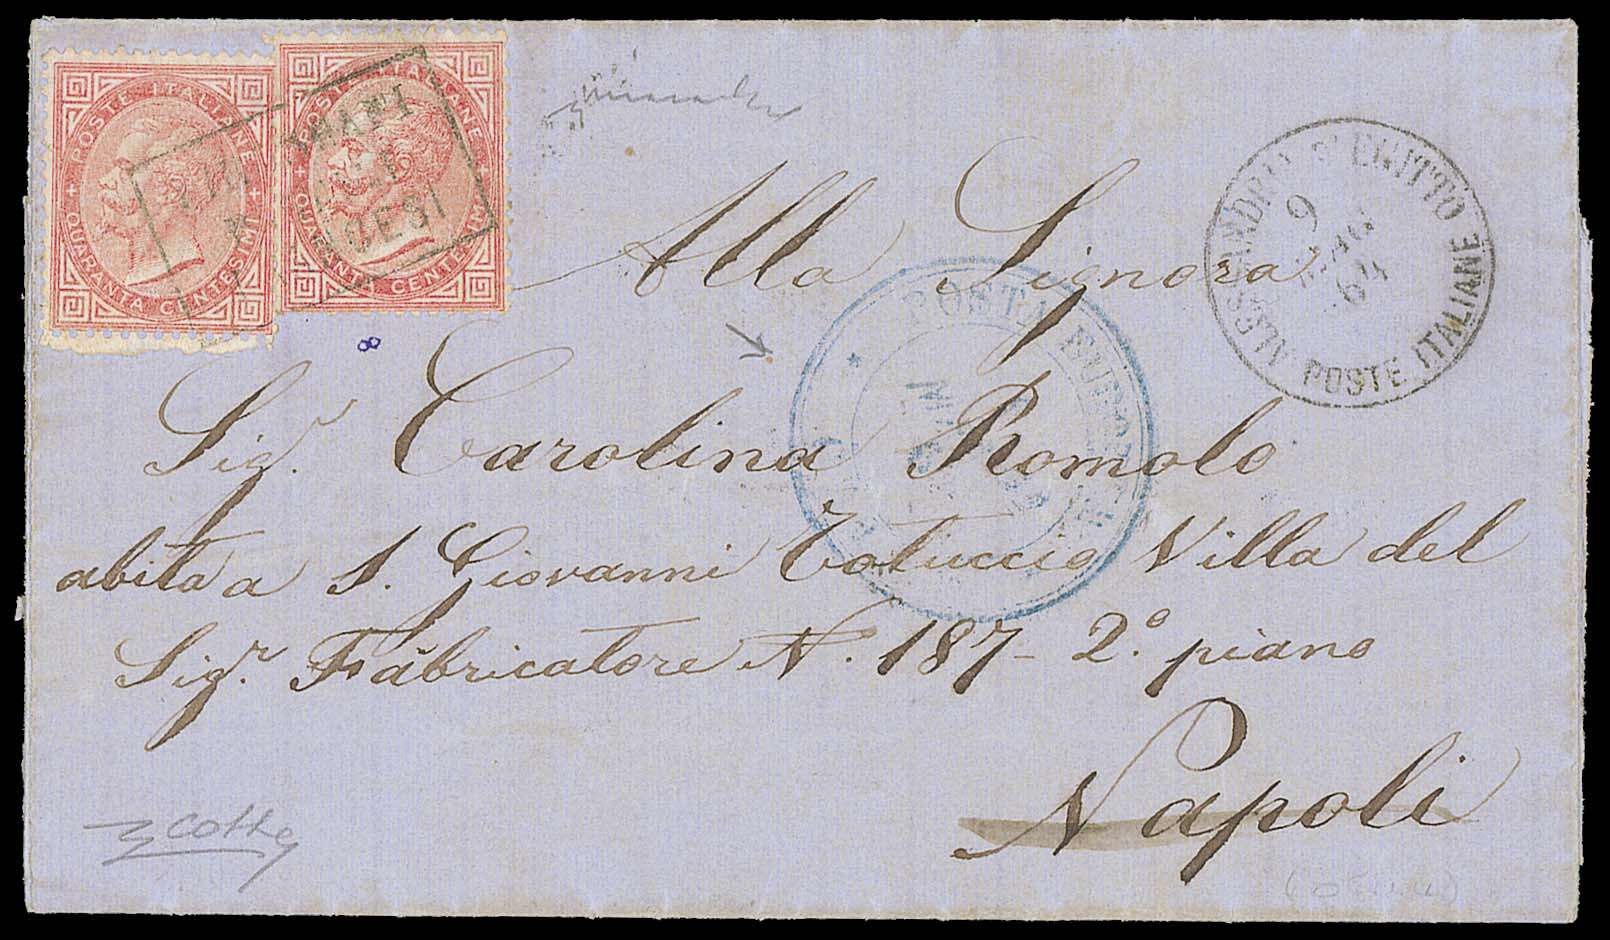 POSTE ITALIANE
QUARANTA CENTESIMI
POSTE ITALIANE
QUARANTA CENTESIMI
ALESSANDRIA D'EGITTO
9
64
POSTE ITALIANE
POSTA EUROPEA
Alla Signora
Sig.ʳ Carolina Romolo
abita a S. Giovanni Toluccio Villa del
Sig.ʳ Fabricatore N. 187 - 2.º piano
Napoli
8